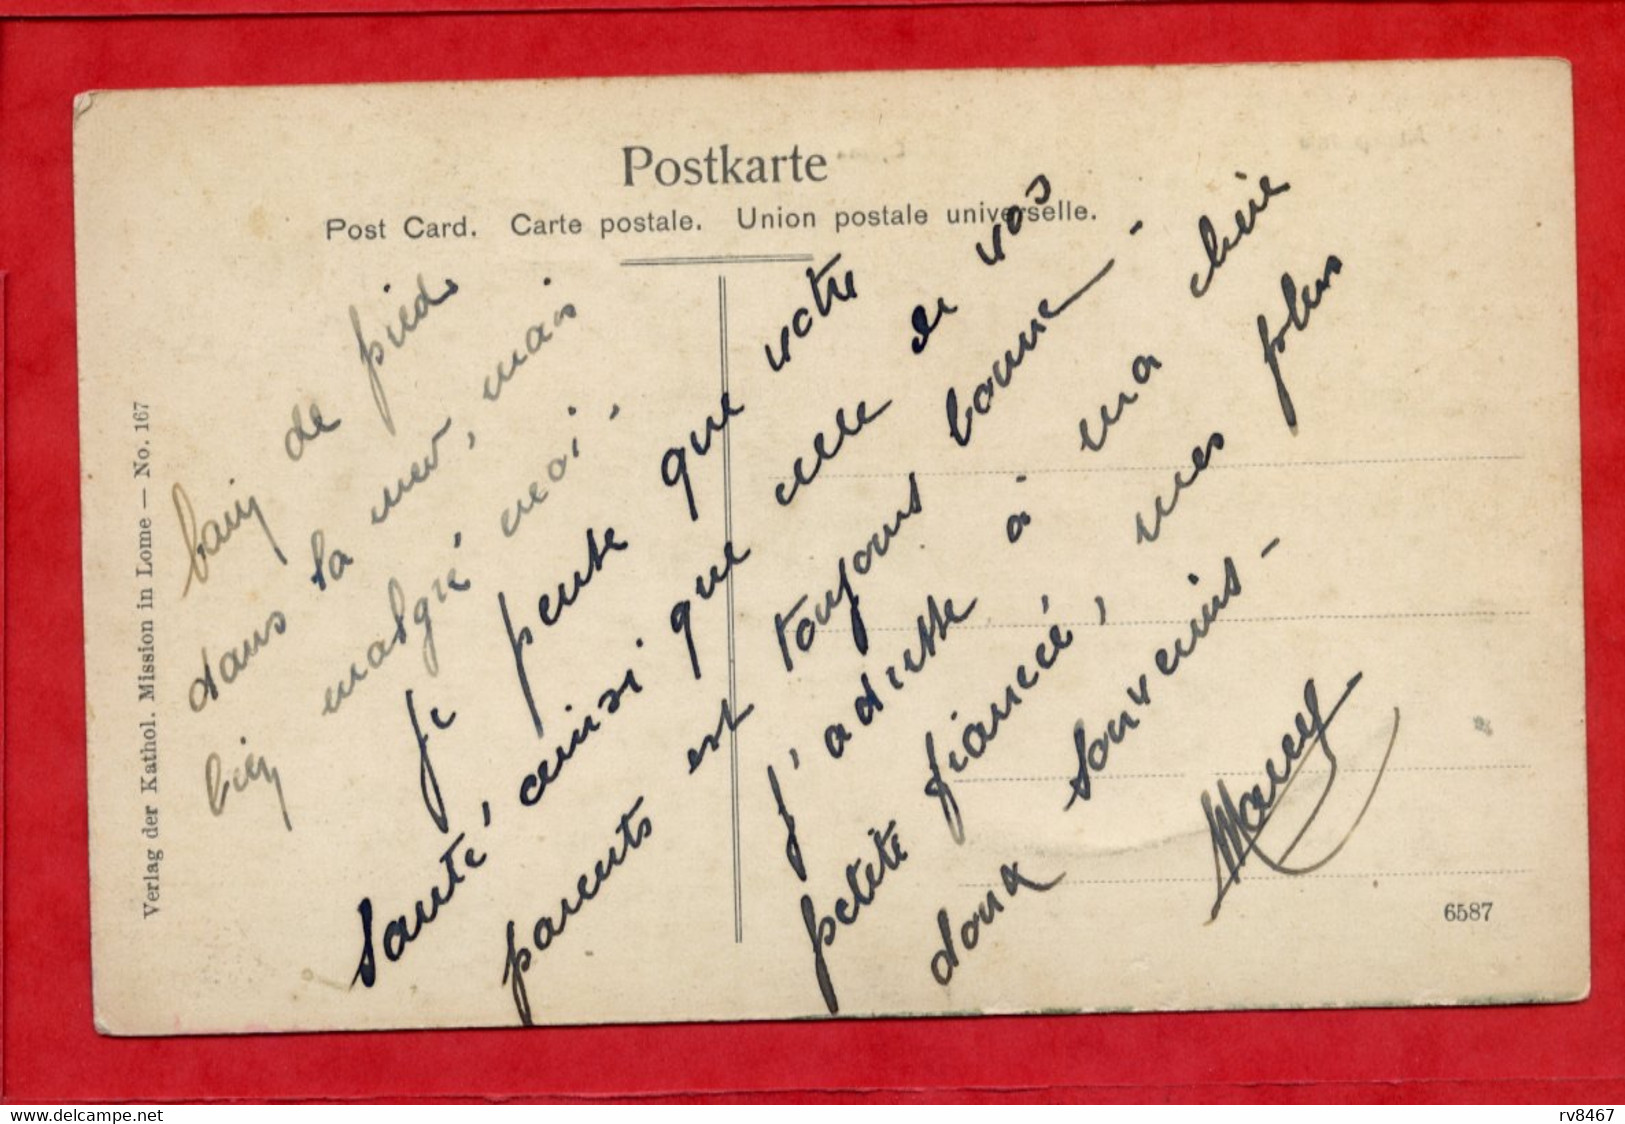 Postkarte
Post Card. Carte postale. Union postale universelle.
Verlag der Kathol. Mission in Lome — No. 167
bain de pied
dans la mer, mais
bien malgré moi -
Je pense que votre
santé, ainsi que celle de vos
parents est toujours bonne -
J'adresse à ma chère
petite fiancée, mes plus
doux souvenirs -
Marcel
6587
www.delcampe.net
rv8467